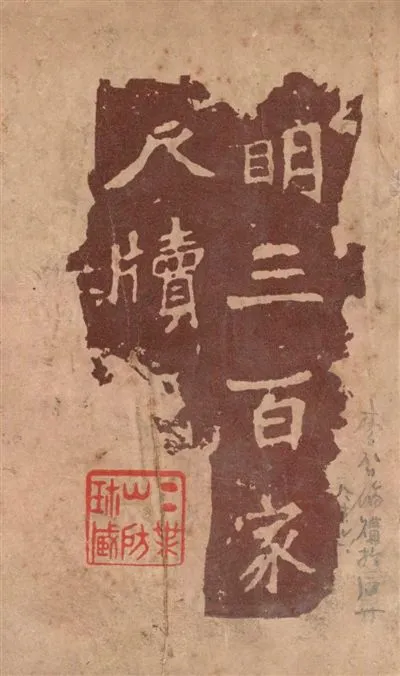 明三百家
尺牘
二葉
山房
珍藏